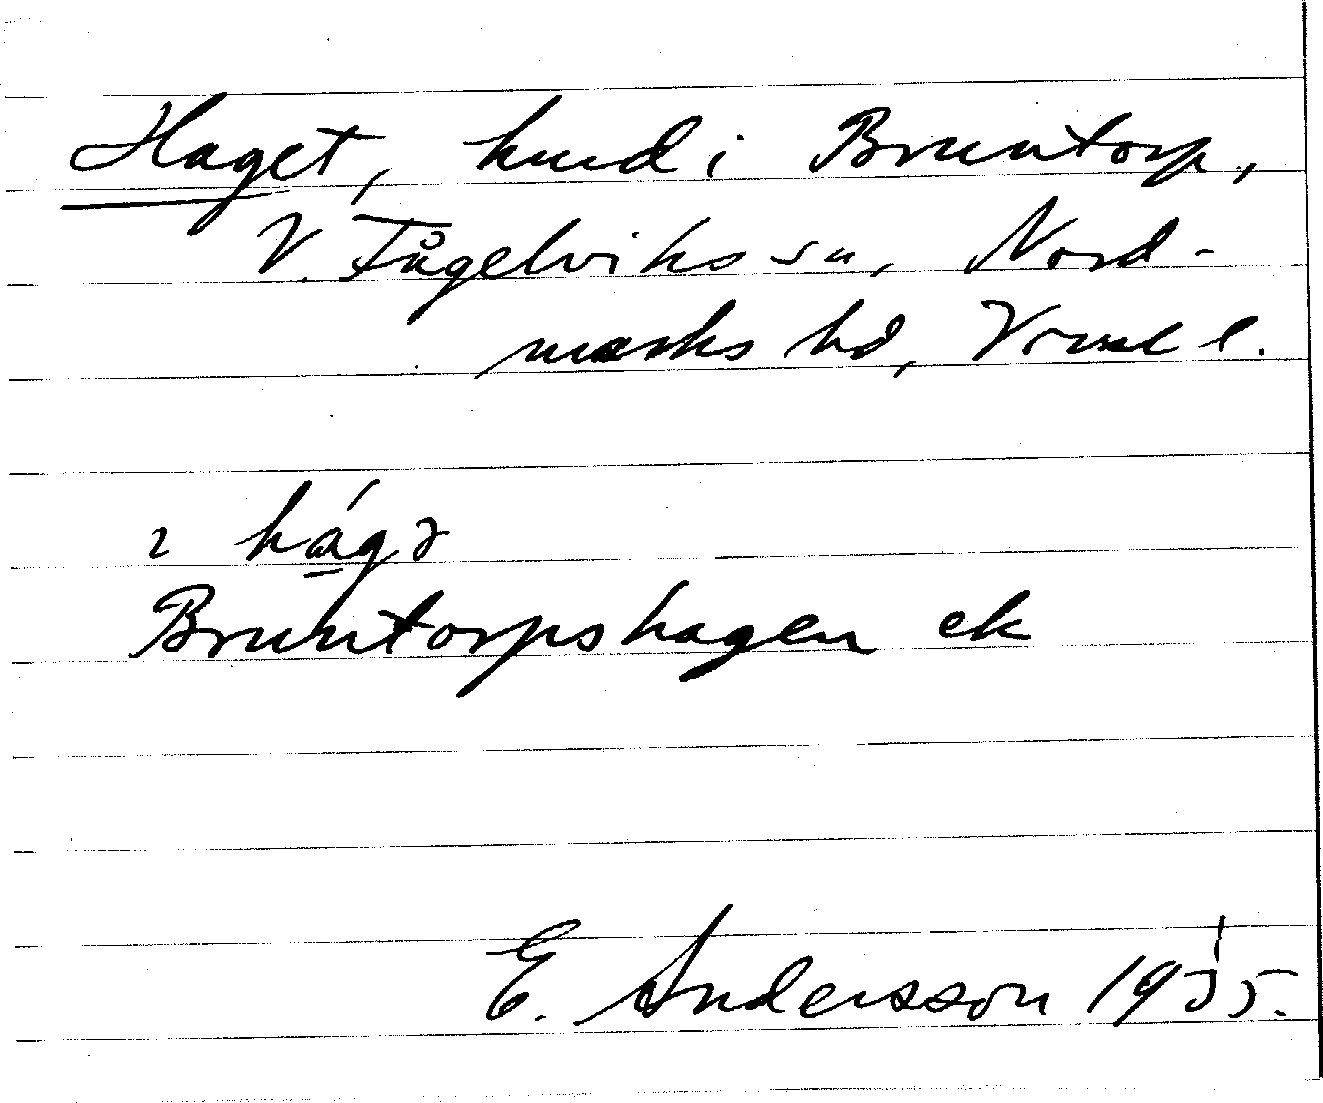 Haget, hmd i Bruntorp,
V. Fågelviks sn, Nord-
marks hd, Vrml l.
ɩ hágɂ
Bruntorpshagen ek
E. Andersson 1935.